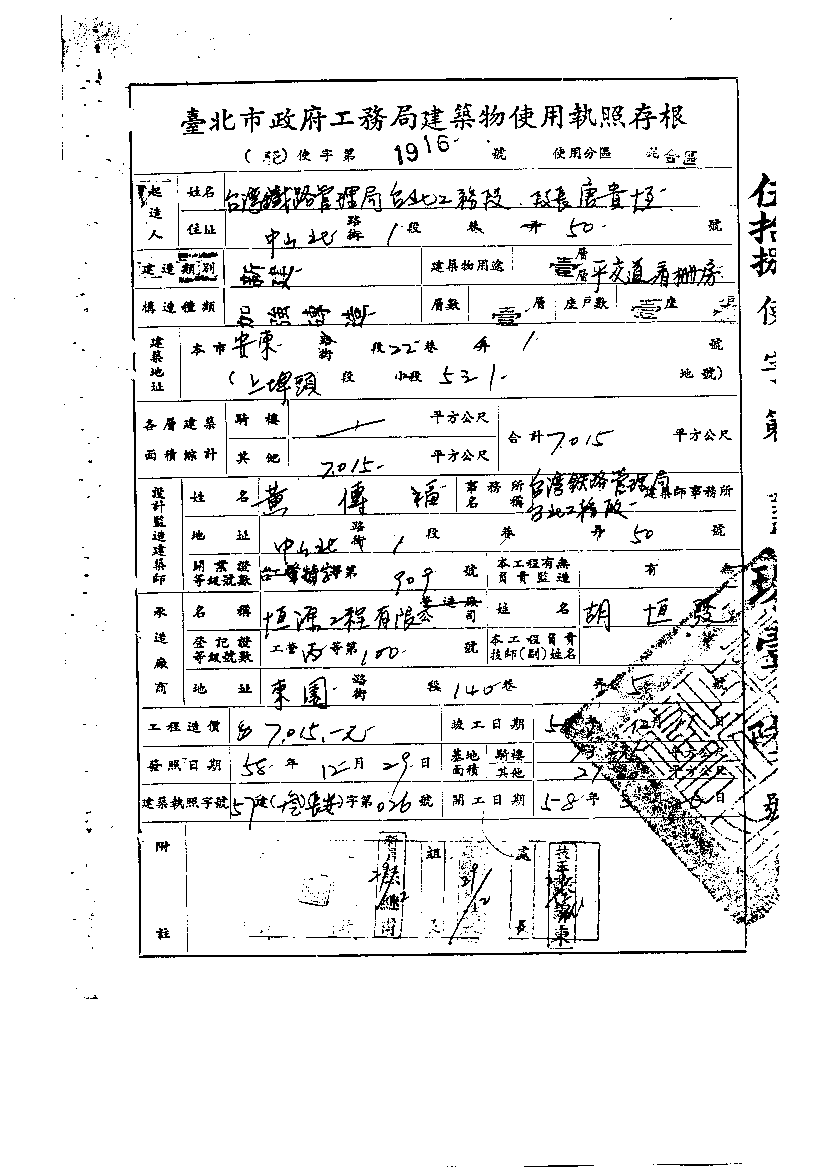 臺北市政府工務局建築物使用執照存根
使字第 1916 號 使用分區 混合區
起造人 姓名 台灣鐵路管理局台北工務段 段長唐貴恒
住址 中山北 路街 1 段 巷 弄 50 號
建造類別 新建 建築物用途 壹層 平交道看柵房
構造種類 加強磚造 層數 壹 層 座戶數 壹 座
建築地址 本市 安東 路街 段 22 巷 弄 1 號
(上埤頭 段 小段 531 地號)
各層建築面積總計 騎樓 平方公尺 合計 7.015 平方公尺
其他 7.015 平方公尺
設計監造建築師 姓名 黃傳福 事務所名稱 台灣鐵路管理局台北工務段 建築師事務所
地址 中山北 路街 1 段 巷 弄 50 號
開業證等級號數 第 909 號 本工程有無負責監造 有 無
承造廠商 名稱 恒源工程有限公司 姓名 胡恒發
登記證等級號數 工營丙等第 100 號 本工程負責技師(副)姓名
地址 東園 路街 段 140 巷 弄 5 號
工程造價 7,015.-元 竣工日期 年 12月 日
發照日期 58 年 12 月 29 日 基地面積 騎樓 平方公尺 其他 平方公尺
建築執照字號 57 建 字第 026 號 開工日期 58 年 日
附註
組
29/12
處長
伍拾捌使字第